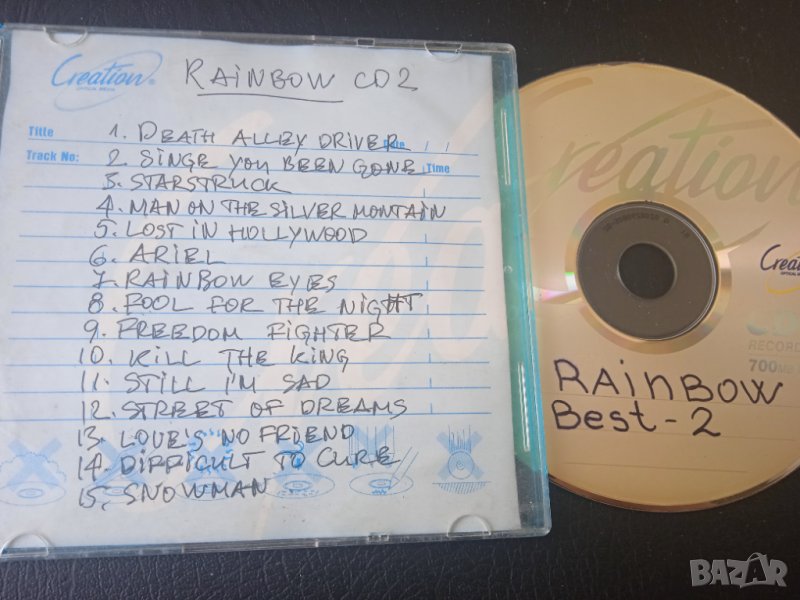 Creation
OPTICAL MEDIA
RAINBOW CD2
Title
Date / /
Track No:
Time
1. DEATH ALLEY DRIVER
2. SINGE YOU BEEN GONE
3. STARSTRUCK
4. MAN ON THE SILVER MONTAIN
5. LOST IN HOLLYWOOD
6. ARIEL
7. RAINBOW EYES
8. FOOL FOR THE NIGHT
9. FREEDOM FIGHTER
10. KILL THE KING
11. STILL I'M SAD
12. STREET OF DREAMS
13. LOVE'S NO FRIEND
14. DIFFICULT TO CURE
15. SNOWMAN
Creation
Creation
RECORD
700MB
RAINBOW
Best-2
BAZAR